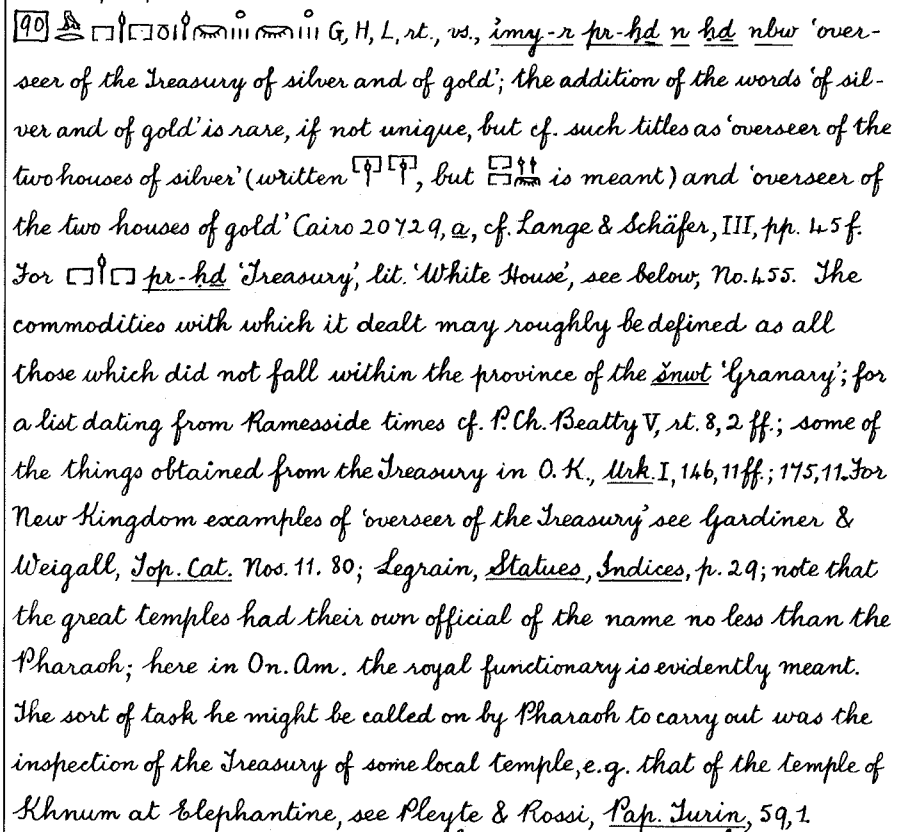 90 G, H, L, rt., vs., imy-r pr-ḥḏ n ḥḏ nbw ‘over-
seer of the Treasury of silver and of gold’; the addition of the words ‘of sil-
ver and of gold’ is rare, if not unique, but cf. such titles as ‘overseer of the
two houses of silver’ (written 𓉐𓌉 𓉐𓌉, but is meant) and ‘overseer of
the two houses of gold’ Cairo 20729, a, cf. Lange & Schäfer, III, pp. 45 f.
For 𓉐𓌉𓉐 pr-ḥḏ ‘Treasury’, lit. ‘White House’, see below, No. 455. The
commodities with which it dealt may roughly be defined as all
those which did not fall within the province of the šnwt ‘Granary’; for
a list dating from Ramesside times cf. P. Ch. Beatty V, rt. 8, 2 ff.; some of
the things obtained from the Treasury in O. K., Urk. I, 146, 11 ff.; 175, 11. For
New Kingdom examples of ‘overseer of the Treasury’ see Gardiner &
Weigall, Top. Cat. Nos. 11. 80; Legrain, Statues, Indices, p. 29; note that
the great temples had their own official of the name no less than the
Pharaoh; here in On. Am. the royal functionary is evidently meant.
The sort of task he might be called on by Pharaoh to carry out was the
inspection of the Treasury of some local temple, e.g. that of the temple of
Khnum at Elephantine, see Pleyte & Rossi, Pap. Turin, 59, 1.